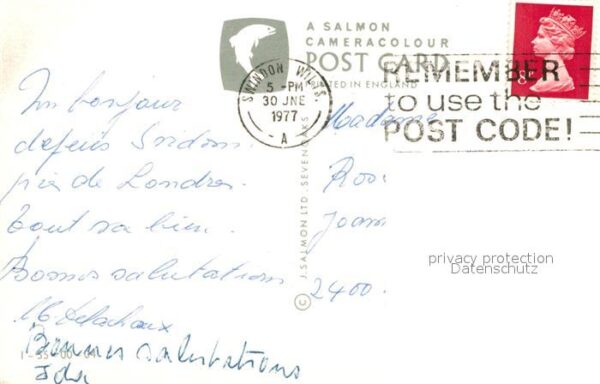 A SALMON
CAMERACOLOUR
POST CARD
PRINTED IN ENGLAND
SWINDON WILTS
5 - PM
30 JNE
1977
- A -
REMEMBER
to use the
POST CODE!
8P
Un bonjour
depuis
près de Londres.
Tout va bien.
Bonnes salutations
Bonnes salutations
Ida
© J. SALMON LTD. SEVENOAKS
Madame
2400
privacy protection
Datenschutz